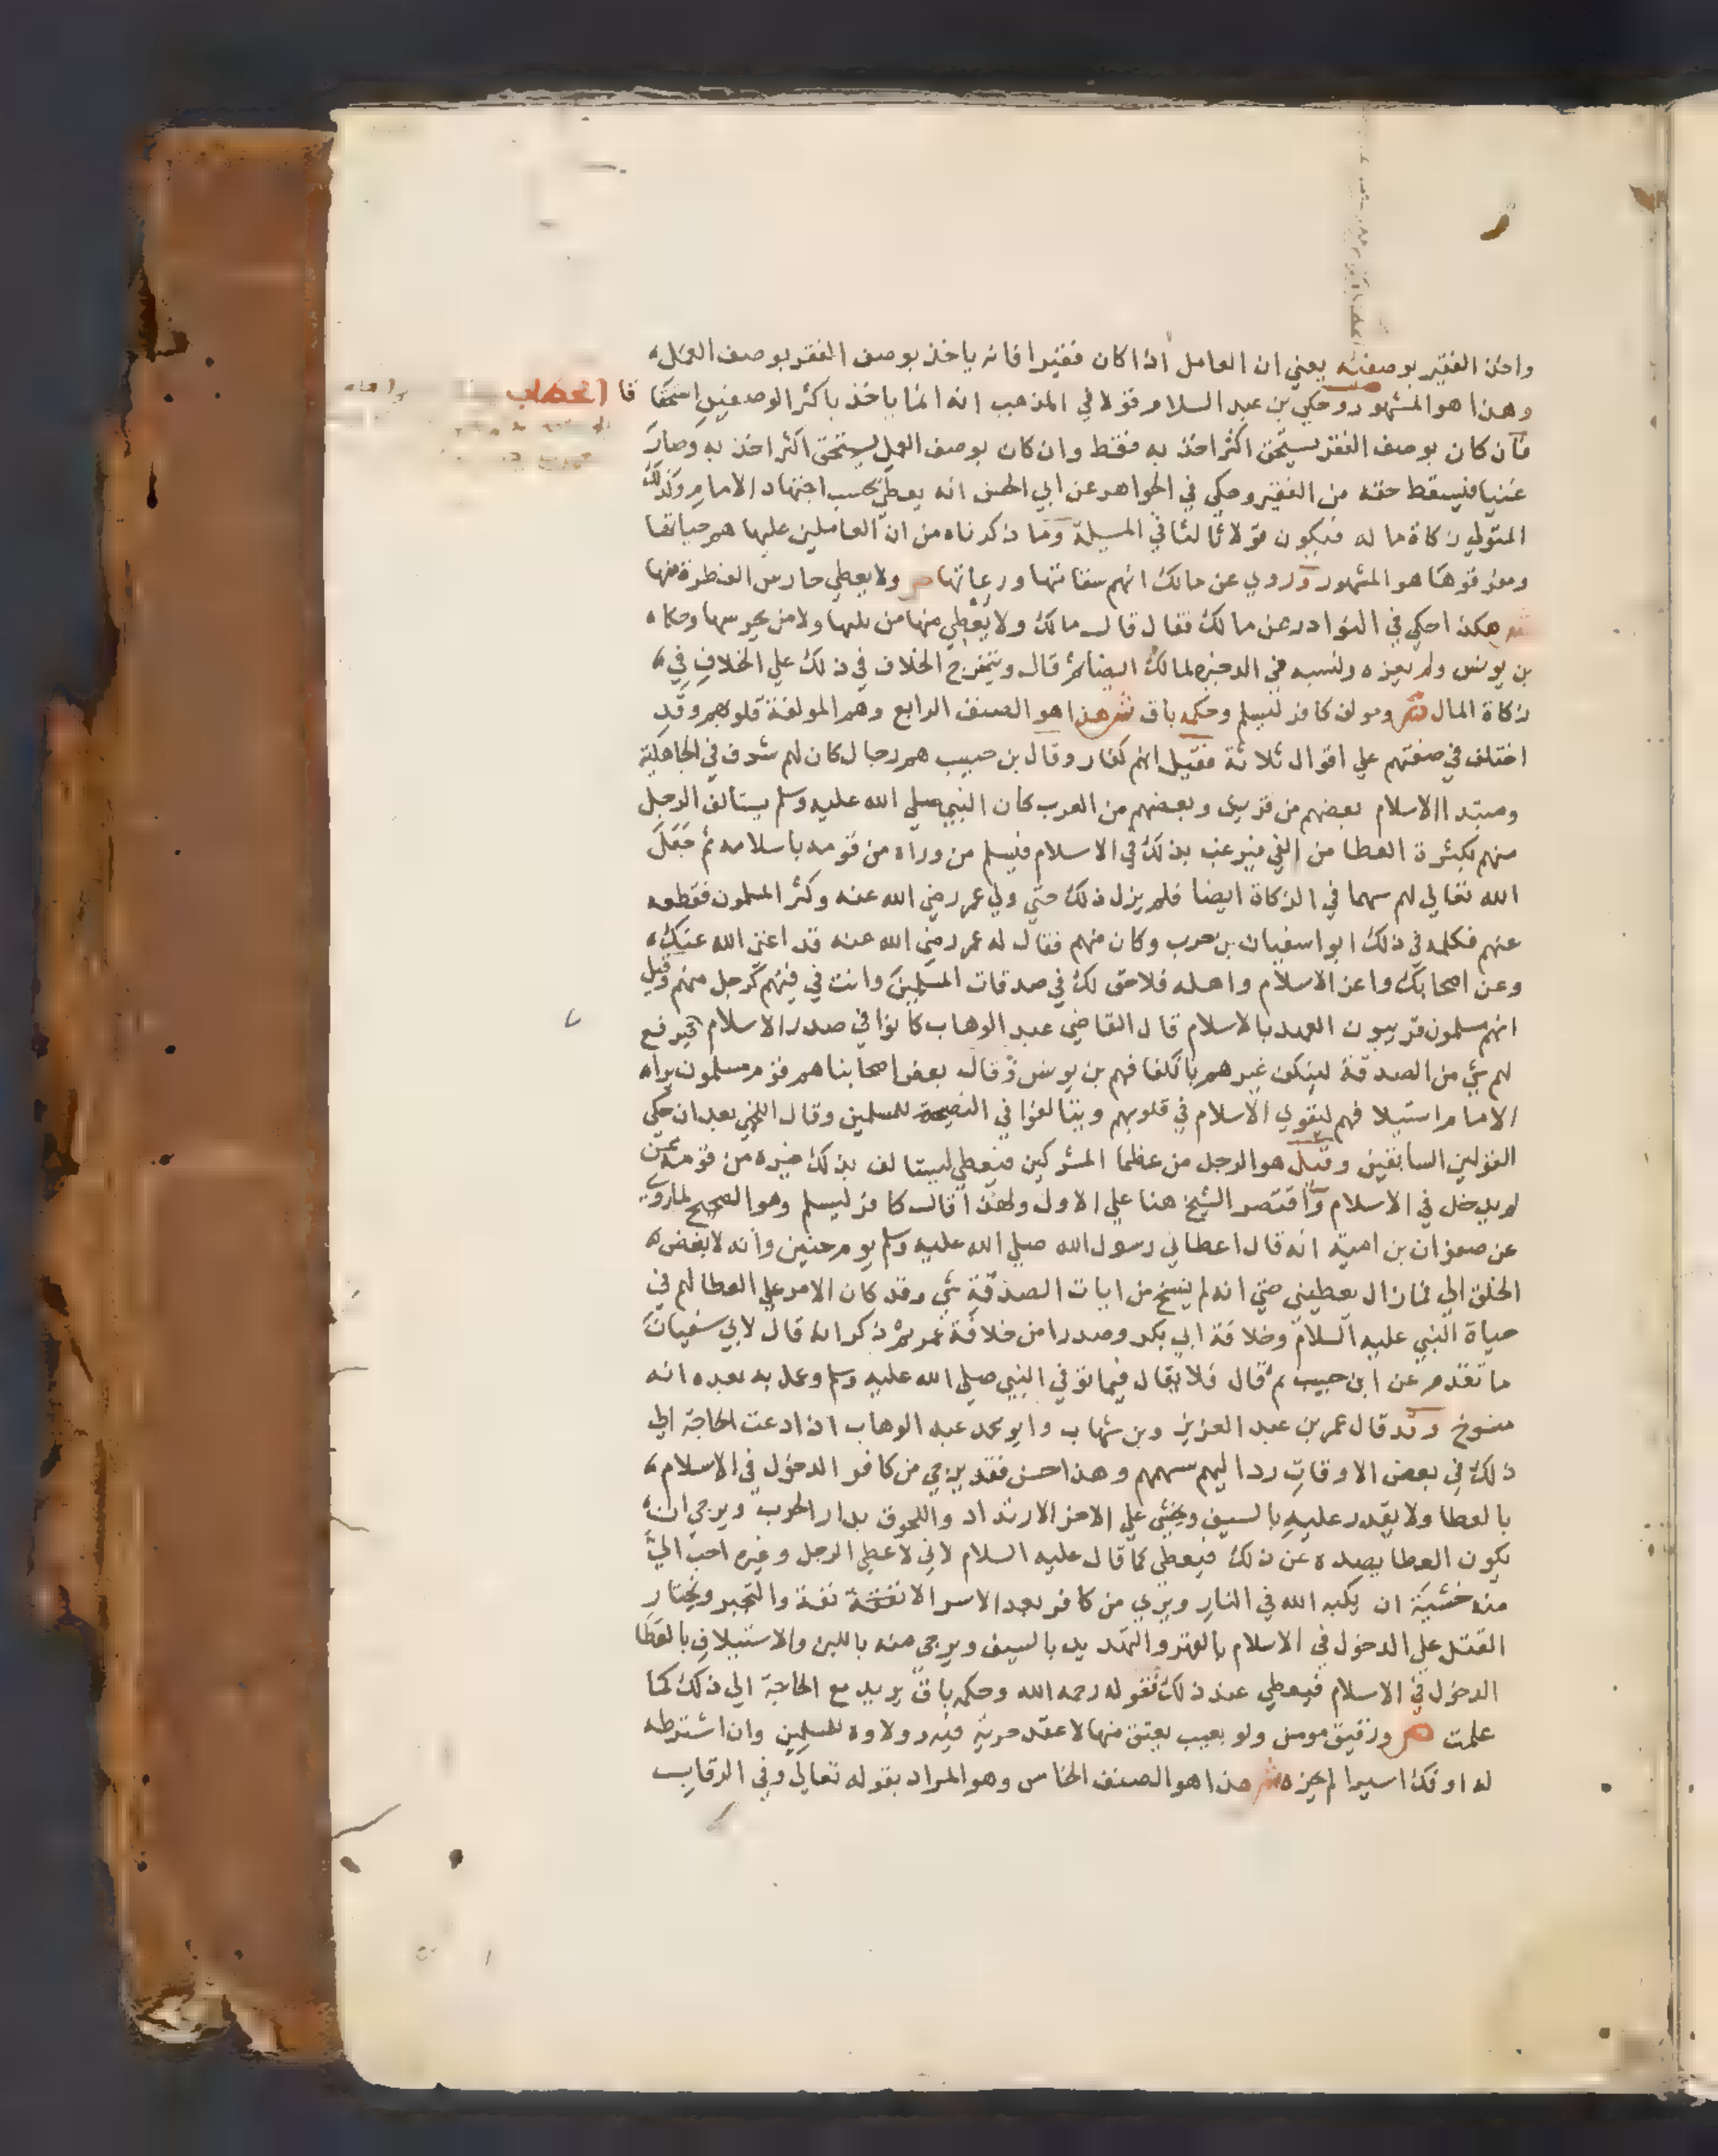 واخذ الفقير بوصفيه يعني ان العامل اذا كان فقيرا فانه ياخذ بوصف الفقر بوصف العمل
وهذا هو المشهور وحكي بن عبد السلام قولا في المذهب انه انما ياخذ باكثر الوصفين استحقا قا
فان كان بوصف الفقر يستحق اكثر اخذ به فقط وان كان بوصف العمل يستحق اكثر اخذ به وصار
غنيا فيسقط حقه من الفقير وحكي في الجواهر عن ابي الحسن انه يعطي بحسب اجتهاد الامام وكذلك
المتولي زكاة ماله فيكون قولا ثالثا في المسيلة وما ذكرناه من ان العاملين عليها هم جباتها
ومفرقوها هو المشهور وروي عن مالك انهم سقاتها ورعاتها ص ولا يعطي حارس الفطرة منها
ش هكذا حكي في النوادر عن مالك فقال قال مالك ولا يعطي منها من يليها ولا من يحرسها وحكاه
بن يونس ولم يعزه ونسبه في الدخيره لمالك ايضا ثم قال ويتخرج الخلاف في ذلك علي الخلاف في
زكاة المال ص ومولف كافر ليسلم وحكمه باق ش هذا هو الصنف الرابع وهم المولفة قلوبهم وقد
اختلف في صفتهم علي اقوال ثلاثة فقيل انهم كفار وقال بن حبيب هم رجال كان لهم شرف في الجاهلية
ومبتدا الاسلام بعضهم من قريش وبعضهم من العرب كان النبي صلي الله عليه وسلم يستالف الرجل
منهم بكثرة العطا من الفي فيرغب بذلك في الاسلام فيسلم من وراه من قومه باسلامه ثم جعل
الله تعالي لهم سهما في الزكاة ايضا فلم يزل ذلك حتي ولي عمر رضي الله عنه وكثر المسلمون فقطعه
عنهم فكلمه في ذلك ابو اسفيان بن حرب وكان منهم فقال له عمر رضي الله عنه قد اغني الله عنك
وعن اصحابك واعن الاسلام واهله فلا حق لك في صدقات المسلمين وانت في فيهم كرجل منهم وقيل
انهم مسلمون قريبون العهد بالاسلام قال القاضي عبد الوهاب كانوا في صدر الاسلام فيرفع
لهم شي من الصدقة لينكف غيرهم بانكفافهم بن يونس وقال بعض اصحابنا هم قوم مسلمون يراه
الامام استيلا فهم ليقوي الاسلام في قلوبهم ويبالغوا في النصيحة للمسلمين وقال اللخمي بعد ان حكي
القولين السابقين وقيل هو الرجل من عظما المشركين فيعطي ليستالف بذلك غيره من قومه ممن
لم يدخل في الاسلام واقتصر الشيخ هنا علي الاول ولهذا قال كافر ليسلم وهو الصحيح لما روي
عن صفوان بن امية انه قال اعطاني رسول الله صلي الله عليه وسلم يوم حنين وانه لابغض
الخلق الي فما زال يعطيني حتي انه لم ينسخ من ايات الصدقة شي وقد كان الامر علي العطا لهم في
حياة النبي عليه السلام وخلافة ابي بكر وصدرا من خلافة عمر ثم ذكر انه قال لابي سفيان
ما تقدم عن ابن حبيب ثم قال فلا يقال فيما توفي النبي صلي الله عليه وسلم وعمل به بعده انه
منسوخ وقد قال عمر بن عبد العزيز وبن شهاب وابو محمد عبد الوهاب اذا دعت الحاجة الي
ذلك في بعض الاوقات رد اليهم سهمهم وهذا احسن فقد يرجي من كافر الدخول في الاسلام
بالعطا ولا يقدر عليه بالسيف ويخشي علي الاخر الارتداد واللحوق بدار الحرب ويرجي ان
يكون العطا يصده عن ذلك فيعطي كما قال عليه السلام لاني لاعطي الرجل وغيره احب الي
منه خشية ان يكبه الله في النار ويري من كافر بعد الاسر الانفة نفة والتجبر ويختار
القتل علي الدخول في الاسلام بالقهر والتهديد بالسيف ويرجي منه باللين والاستيلاف بالعطا
الدخول في الاسلام فيعطي عند ذلك فقوله رحمه الله وحكمه باق يريد مع الحاجة الي ذلك كما
علمت ص ورقيق مومن ولو بعيب يعتق منها لا عقد حرية فيه وولاوه للمسلمين وان اشترطه
له او فك اسيرا لم يجزه ش هذا هو الصنف الخامس وهو المراد بقوله تعالي وفي الرقاب